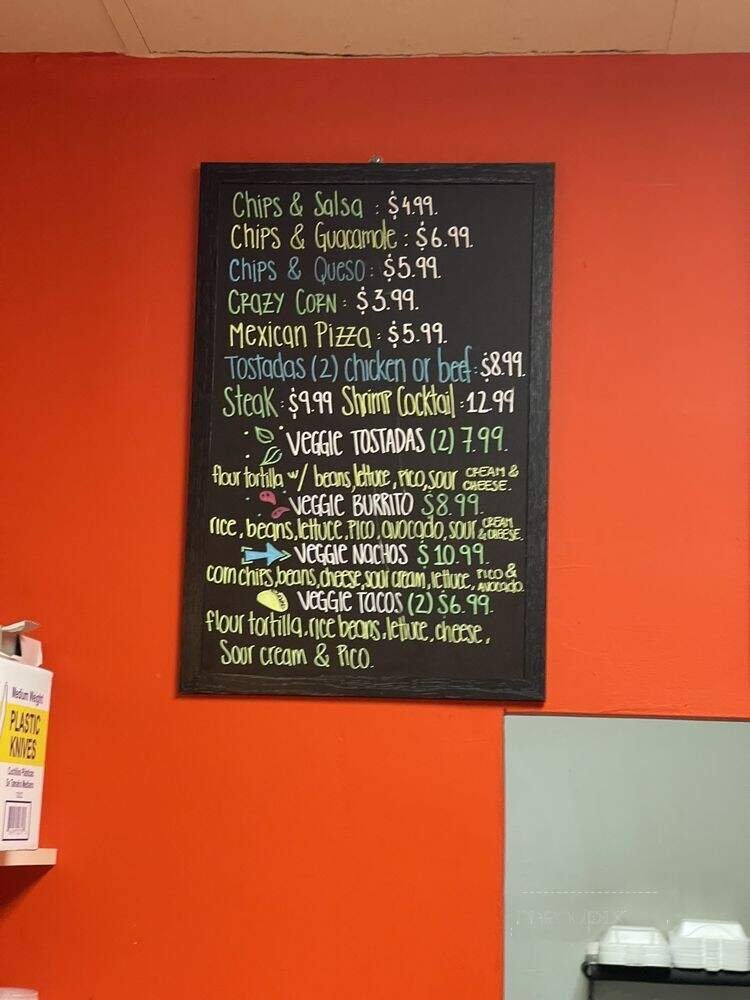 Chips & Salsa : $4.99.
Chips & Guacamole : $6.99.
Chips & Queso : $5.99.
CRAZY CORN : $3.99.
Mexican Pizza : $5.99.
Tostadas (2) chicken or beef : $8.99.
Steak : $9.99 Shrimp Cocktail : 12.99
VEGGIE TOSTADAS (2) 7.99.
flour tortilla w/ beans, lettuce, pico, sour CREAM & CHEESE.
VEGGIE BURRITO $8.99.
rice, beans, lettuce, pico, avocado, sour CREAM & CHEESE.
VEGGIE NACHOS $10.99.
corn chips, beans, cheese, sour cream, lettuce, PICO & AVOCADO.
VEGGIE TACOS (2) $6.99.
flour tortilla, rice beans, lettuce, cheese,
Sour cream & Pico.
Medium Weight
PLASTIC
KNIVES